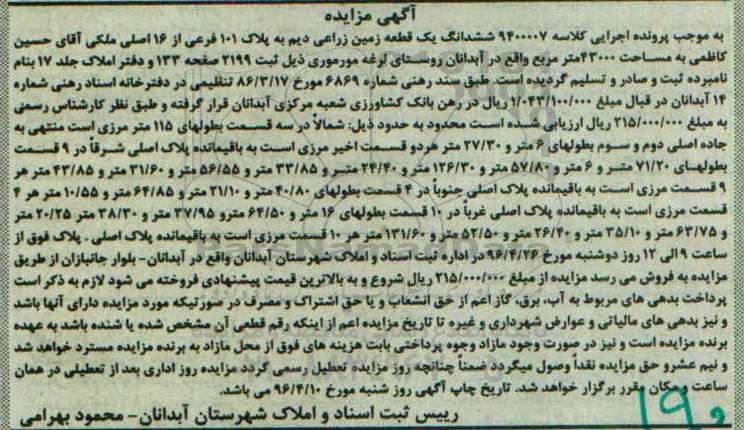 آگهی مزایده
به موجب پرونده اجرایی کلاسه ۹۴۰۰۰۰۷ ششدانگ یک قطعه زمین زراعی دیم به پلاک ۱۰۱ فرعی از ۱۶ اصلی ملکی آقای حسین
کاظمی به مساحت ۴۳۰۰۰متر مربع واقع در آبدانان روستای لرغه مورموری ذیل ثبت ۲۱۹۹ صفحه ۱۳۳ و دفتر املاک جلد ۱۷ بنام
نامبرده ثبت و صادر و تسلیم گردیده است. طبق سند رهنی شماره ۶۸۶۹ مورخ ۸۶/۳/۱۷ تنظیمی در دفترخانه اسناد رهنی شماره
۱۴ آبدانان در قبال مبلغ ۱/۰۴۳/۱۰۰/۰۰۰ ریال در رهن بانک کشاورزی شعبه مرکزی آبدانان قرار گرفته و طبق نظر کارشناس رسمی
به مبلغ ۲۱۵/۰۰۰/۰۰۰ ریال ارزیابی شده است محدود به حدود ذیل: شمالاً در سه قسمت بطولهای ۱۱۵ متر مرزی است منتهی به
جاده اصلی دوم و سوم بطولهای ۶ متر و ۲۷/۳۰ متر هردو قسمت اخیر مرزی است به باقیمانده پلاک اصلی شرقاً در ۹ قسمت
بطولهای ۷۱/۲۰ متر و ۶ متر و ۵۷/۸۰ متر و ۱۳۶/۳۰ متر و ۲۴/۴۰ متر و ۳۳/۸۵ متر و ۵۶/۵۵ متر و ۳۱/۶۰ متر و ۴۳/۸۵ متر هر
۹ قسمت مرزی است به باقیمانده پلاک اصلی جنوباً در ۴ قسمت بطولهای ۴۰/۸۰ متر و ۲۱/۱۰ متر و ۶۴/۸۵ متر و ۱۰/۵۵ متر هر ۴
قسمت مرزی است به باقیمانده پلاک اصلی غرباً در ۱۰ قسمت بطولهای ۱۶ متر و ۶۴/۵۰ مترو ۳۷/۹۵ متر و ۳۸/۳۰ متر ۲۰/۲۵ متر
و ۶۳/۷۵ متر و ۳۵/۱۰ متر و ۲۶/۴۰ متر و ۵۲/۵۰ متر و ۱۳۱/۶۰ متر هر ۱۰ قسمت مرزی است به باقیمانده پلاک اصلی . پلاک فوق از
ساعت ۹ الی ۱۲ روز دوشنبه مورخ ۹۶/۴/۲۶ در اداره ثبت اسناد و املاک شهرستان آبدانان واقع در آبدانان- بلوار جانبازان از طریق
مزایده به فروش می رسد مزایده از مبلغ ۲۱۵/۰۰۰/۰۰۰ ریال شروع و به بالاترین قیمت پیشنهادی فروخته می شود لازم به ذکر است
پرداخت بدهی های مربوط به آب، برق، گاز اعم از حق انشعاب و یا حق اشتراک و مصرف در صورتیکه مورد مزایده دارای آنها باشد
و نیز بدهی های مالیاتی و عوارض شهرداری و غیره تا تاریخ مزایده اعم از اینکه رقم قطعی آن مشخص شده یا شنده باشد به عهده
برنده مزایده است و نیز در صورت وجود مازاد وجوه پرداختی بابت هزینه های فوق از محل مازاد به برنده مزایده مسترد خواهد شد
و نیم عشرو حق مزایده نقداً وصول میگردد ضمناً چنانچه روز مزایده تعطیل رسمی گردد مزایده روز اداری بعد از تعطیلی در همان
ساعت و مکان مقرر برگزار خواهد شد. تاریخ چاپ آگهی روز شنبه مورخ ۹۶/۴/۱۰ می باشد.
رییس ثبت اسناد و املاک شهرستان آبدانان- محمود بهرامی